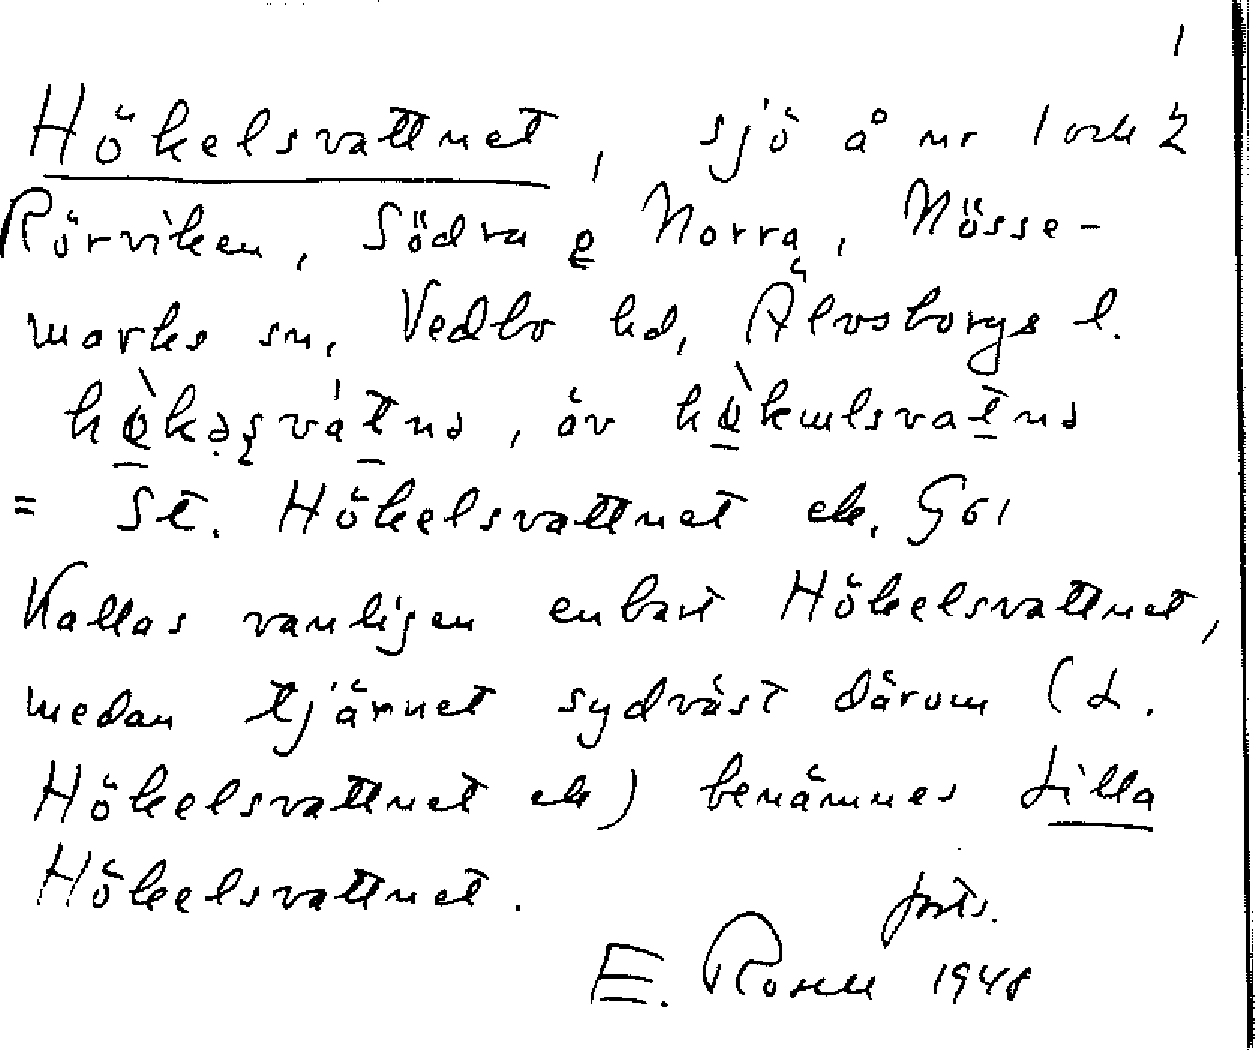 1
Hökelsvattnet, sjö å nr 1 och 2
Rörviken, Södra e Norra, Nösse-
marks sn, Vedbo hd, Älvsborgs l.
, äv
= St. Hökelsvattnet ek. G 61
Kallas vanligen enbart Hökelsvattnet,
medan tjärnet sydväst därom (L.
Hökelsvattnet ek) benämnes Lilla
Hökelsvattnet.
forts.
E. Rosell 1948